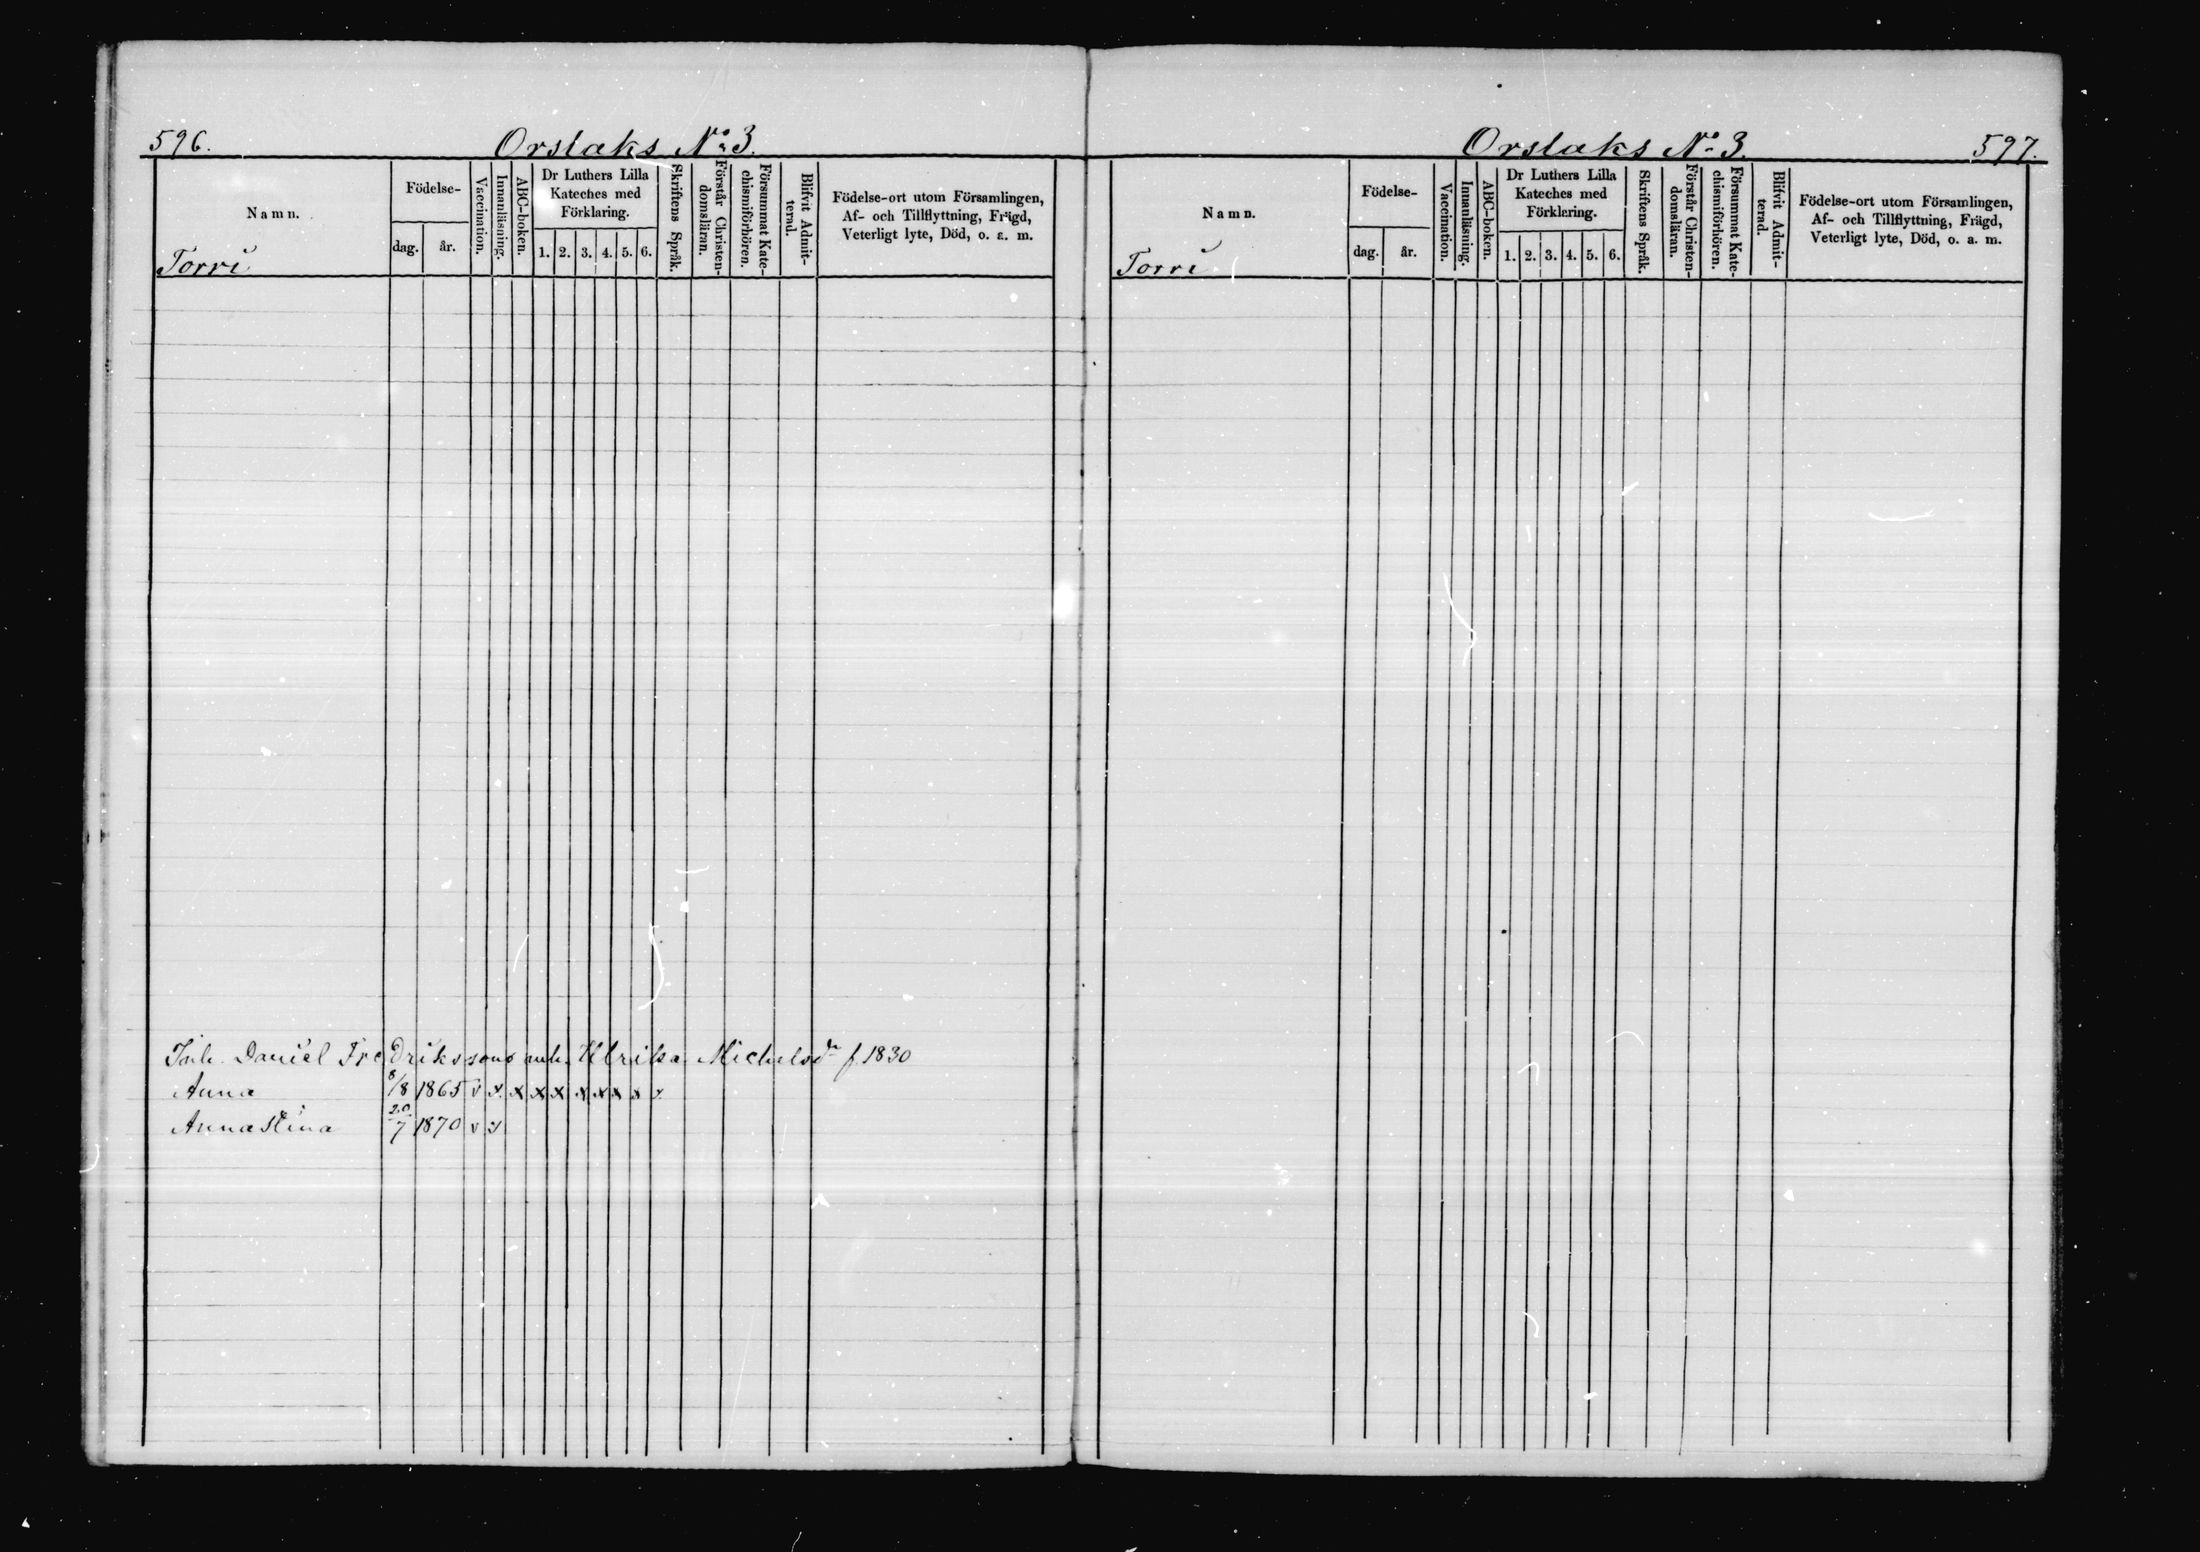 596. Orslaks No 3.
Namn. Födelse- dag. år. Vaccination. Innanläsning. ABC-boken. Dr Luthers Lilla Kateches med Förklaring. 1. 2. 3. 4. 5. 6. Skriftens Språk. Förstår Christen-domsläran. Försummat Kate-chismiförhören. Blifvit Admit-terad. Födelse-ort utom Församlingen, Af- och Tillflyttning, Frägd, Veterligt lyte, Död, o. a. m.
Torri
Inh. Daniel Fredrikssons enk. Ulrika Michelsdr f. 1830
Anna 8/8 1865 v x x x x x x x x x
Anna Stina 20/7 1870 v x
Orslaks No 3. 597.
Namn. Födelse- dag. år. Vaccination. Innanläsning. ABC-boken. Dr Luthers Lilla Kateches med Förklaring. 1. 2. 3. 4. 5. 6. Skriftens Språk. Förstår Christen-domsläran. Försummat Kate-chismiförhören. Blifvit Admit-terad. Födelse-ort utom Församlingen, Af- och Tillflyttning, Frägd, Veterligt lyte, Död, o. a. m.
Torri